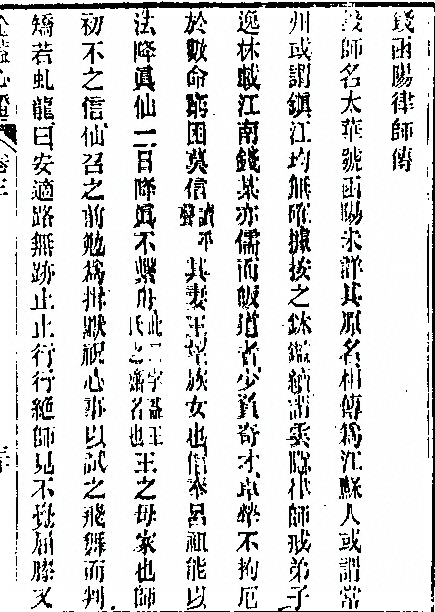 錢函陽律師傳
錢師名太華號函陽未詳其原名相傳爲江蘇人或謂常
州或謂鎮江均無確據按之鉢鑑續謂雲隱律師戒弟子
逸林載江南錢某亦儒而皈道者少負奇才卓犖不拘厄
於數命窮困莫信 其妻王望族女也信奉呂祖能以
法降眞仙一日降眞不繫舟此二字蓋王氏之齋名也王之母家也師
初不之信仙召之前勉爲拜默祝心事以試之飛舞而判
矯若虬龍曰安適路無跡止止行行絶師見不覺屈膝又
金蓋心燈 卷三